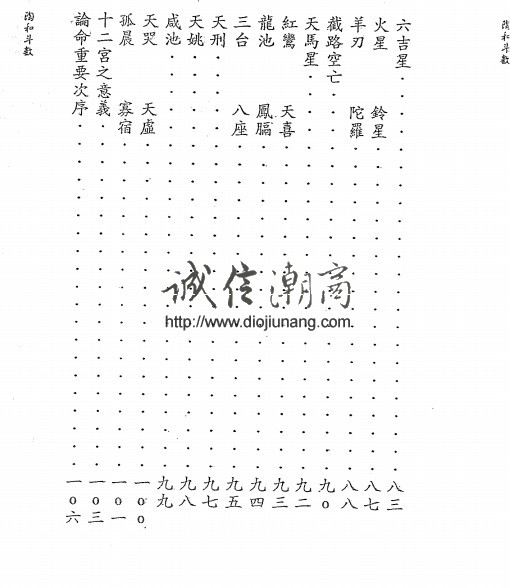 陶和斗数
六吉星・・・・・・・・・・・・・・・・・・・・八三
火星 鈴星・・・・・・・・・・・・・・・・・八七
羊刃 陀羅・・・・・・・・・・・・・・・・・八八
截路空亡・・・・・・・・・・・・・・・・・・・九o
天馬星・・・・・・・・・・・・・・・・・・・・九二
紅鸞 天喜・・・・・・・・・・・・・・・・・九三
龍池 鳳膈・・・・・・・・・・・・・・・・・九四
三台 八座・・・・・・・・・・・・・・・・・九五
天刑・・・・・・・・・・・・・・・・・・・・・九七
天姚・・・・・・・・・・・・・・・・・・・・・九八
咸池・・・・・・・・・・・・・・・・・・・・・九九
天哭 天虛・・・・・・・・・・・・・・・・・一oo
孤晨 寡宿・・・・・・・・・・・・・・・・・一o一
十二宮之意義・・・・・・・・・・・・・・・・・一o三
論命重要次序・・・・・・・・・・・・・・・・・一o六
陶和斗数
诚信潮商
http://www.diojiunang.com